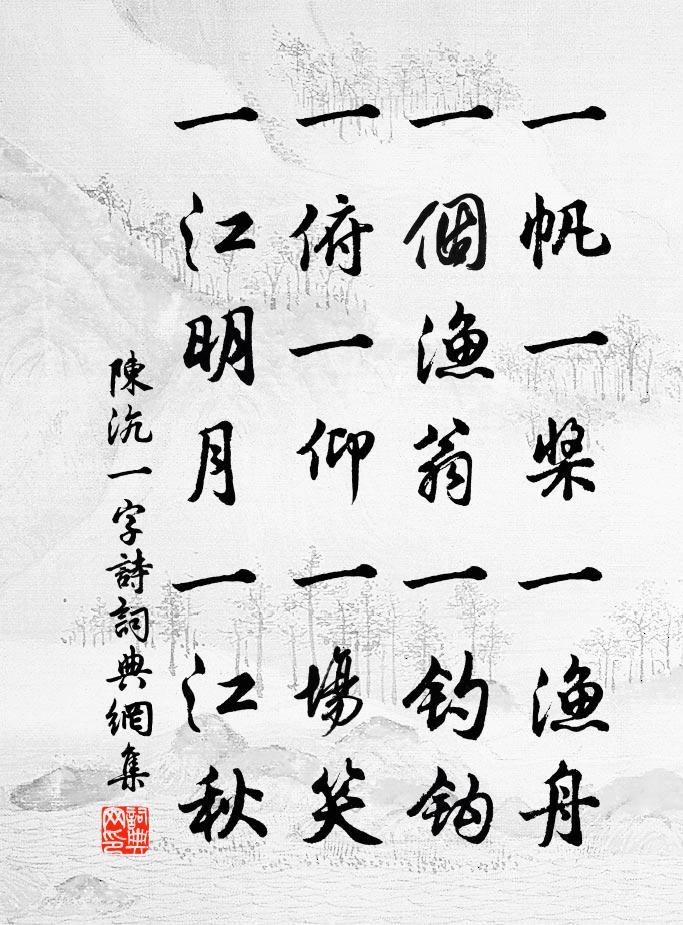 一帆一桨一渔舟
一個渔翁一钓钩
一俯一仰一場笑
一江明月一江秋
陳沆一字詩詞典網集
詞典網印